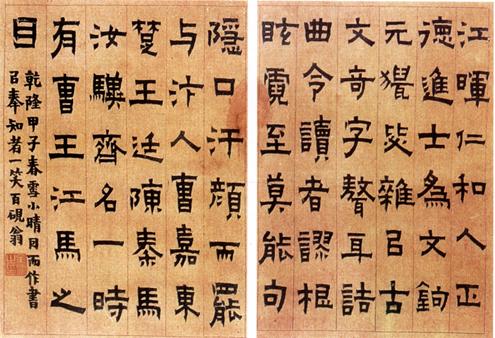 江暉仁和人正
德進士為文鉤
元獵毖雜㠯古
文奇字聱耳詰
曲令讀者謬棖
眩霓至莫能句
隱口汗顏而罷
与汴人曹嘉東
楚王廷陳秦馬
汝驥齊名一時
有曹王江馬之
目
乾隆甲子春雪小晴囙而作書
㠯奉知者一笑百硯翁